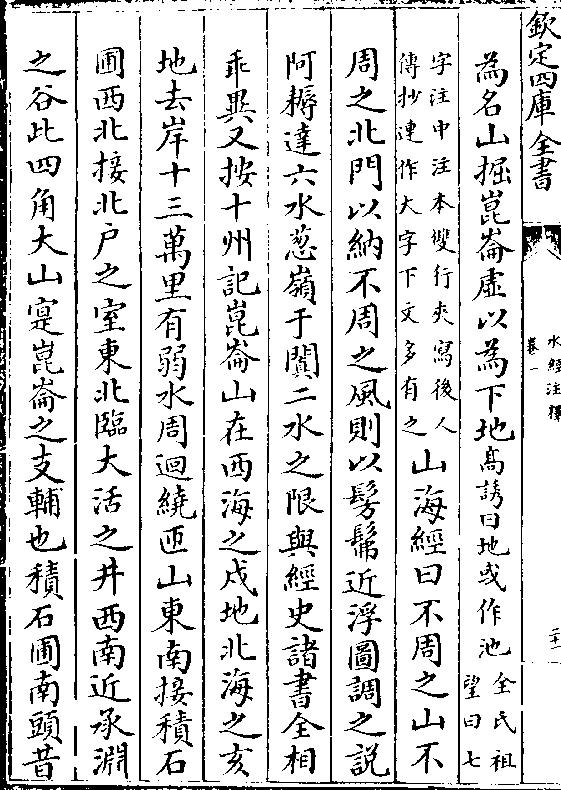 欽定四庫全書
水經注釋
卷一
二十一
為名山掘崑崙虛以為下地高誘曰地或作池全氏祖望曰七
字注中注本雙行夾寫後人傳抄連作大字下文多有之山海經曰不周之山不
周之北門以納不周之風則以髣髴近浮圖調之説
阿耨達六水葱嶺于闐二水之限與經史諸書全相
乖異又按十州記崑崙山在西海之戍地北海之亥
地去岸十三萬里有弱水周迴繞匝山東南接積石
圃西北接北户之室東北臨大活之井西南近承淵
之谷此四角大山寔崑崙之支輔也積石圃南頭昔